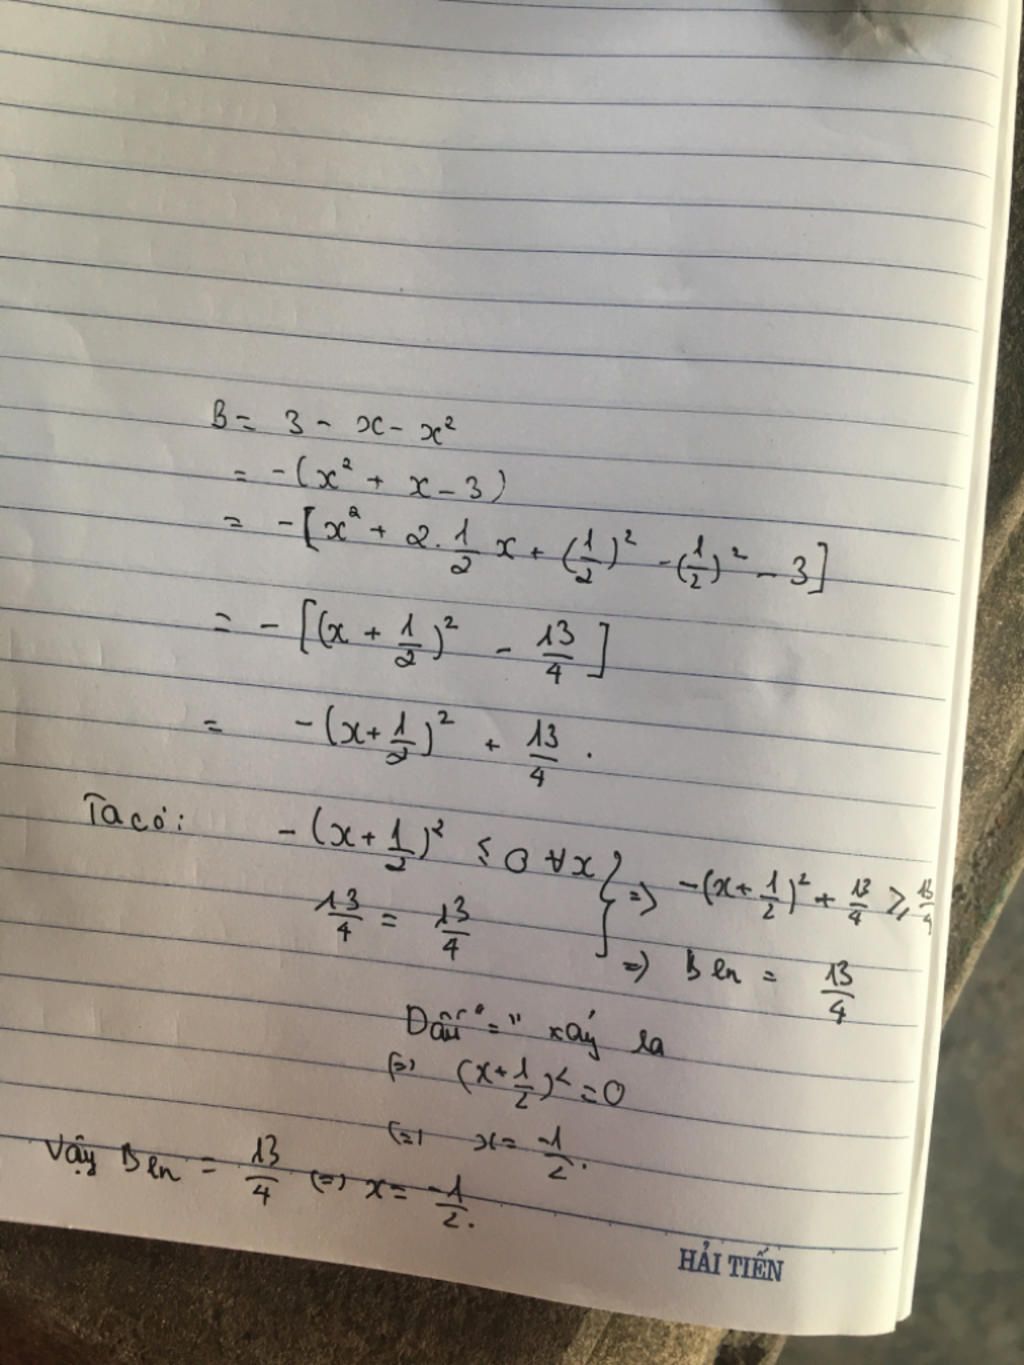 B = 3 - x - x²
= -(x² + x - 3)
= -[x² + 2.1/2 x + (1/2)² - (1/2)² - 3]
= -[(x + 1/2)² - 13/4]
= -(x + 1/2)² + 13/4 .
Ta có: -(x + 1/2)² ≤ 0 ∀x } => -(x + 1/2)² + 13/4 ≥ 13/4
13/4 = 13/4
=> B ln = 13/4
Dấu "=" xảy ra
(=) (x + 1/2)² = 0
(=) x = -1/2.
Vậy B ln = 13/4 (=) x = -1/2.
HẢI TIẾN